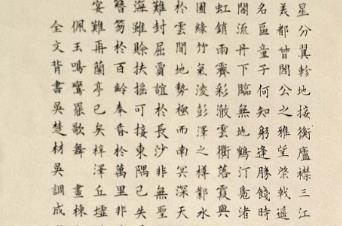 星分翼軫地接衡廬襟三江
美都督閻公之雅望棨戟遙
名區童子何知躬逢勝餞時
閣流丹下臨無地鶴汀鳧渚
虹銷雨霽彩澈雲衢落霞與
園綠竹氣淩彭澤之樽鄴水
於雲間地勢極而南溟深天
難封屈賈誼於長沙非無聖
海雖賒扶搖可接東隅已失
簪笏於百齡奉於萬里非
宴難再蘭亭已矣梓澤丘墟
佩玉鳴鸞罷歌舞畫棟
全文背書吳楚材吳調成